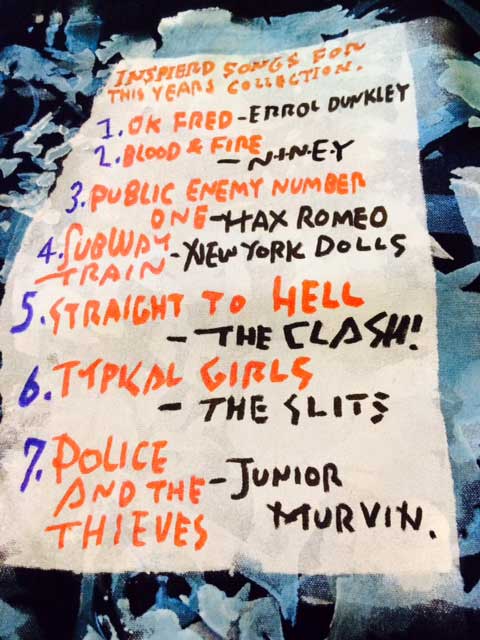 INSPIERD SONGS FOR
THIS YEARS COLLECTION.
1. OK FRED - ERROL DUNKLEY
2. BLOOD & FIRE
- N-I-N-E-Y
3. PUBLIC ENEMY NUMBER
ONE - MAX ROMEO
4. SUBWAY
TRAIN - NEW YORK DOLLS
5. STRAIGHT TO HELL
- THE CLASH!
6. TYPICAL GIRLS
- THE SLITS
7. POLICE
AND THE - JUNIOR
THIEVES MURVIN.